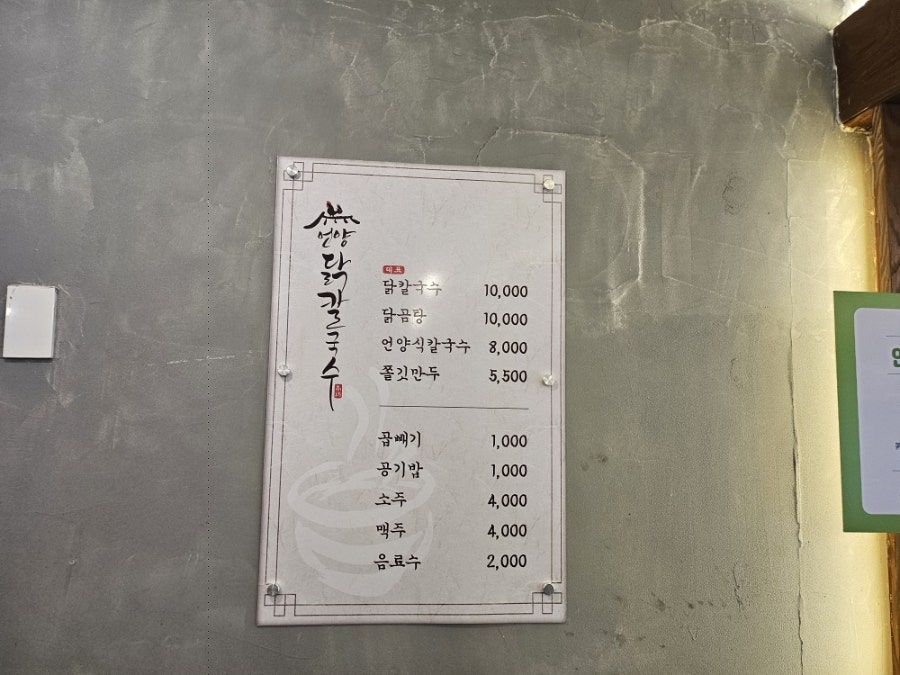 언양
닭칼국수
대표
닭칼국수 10,000
닭곰탕 10,000
언양식칼국수 8,000
쫄깃만두 5,500
곱빼기 1,000
공기밥 1,000
소주 4,000
맥주 4,000
음료수 2,000